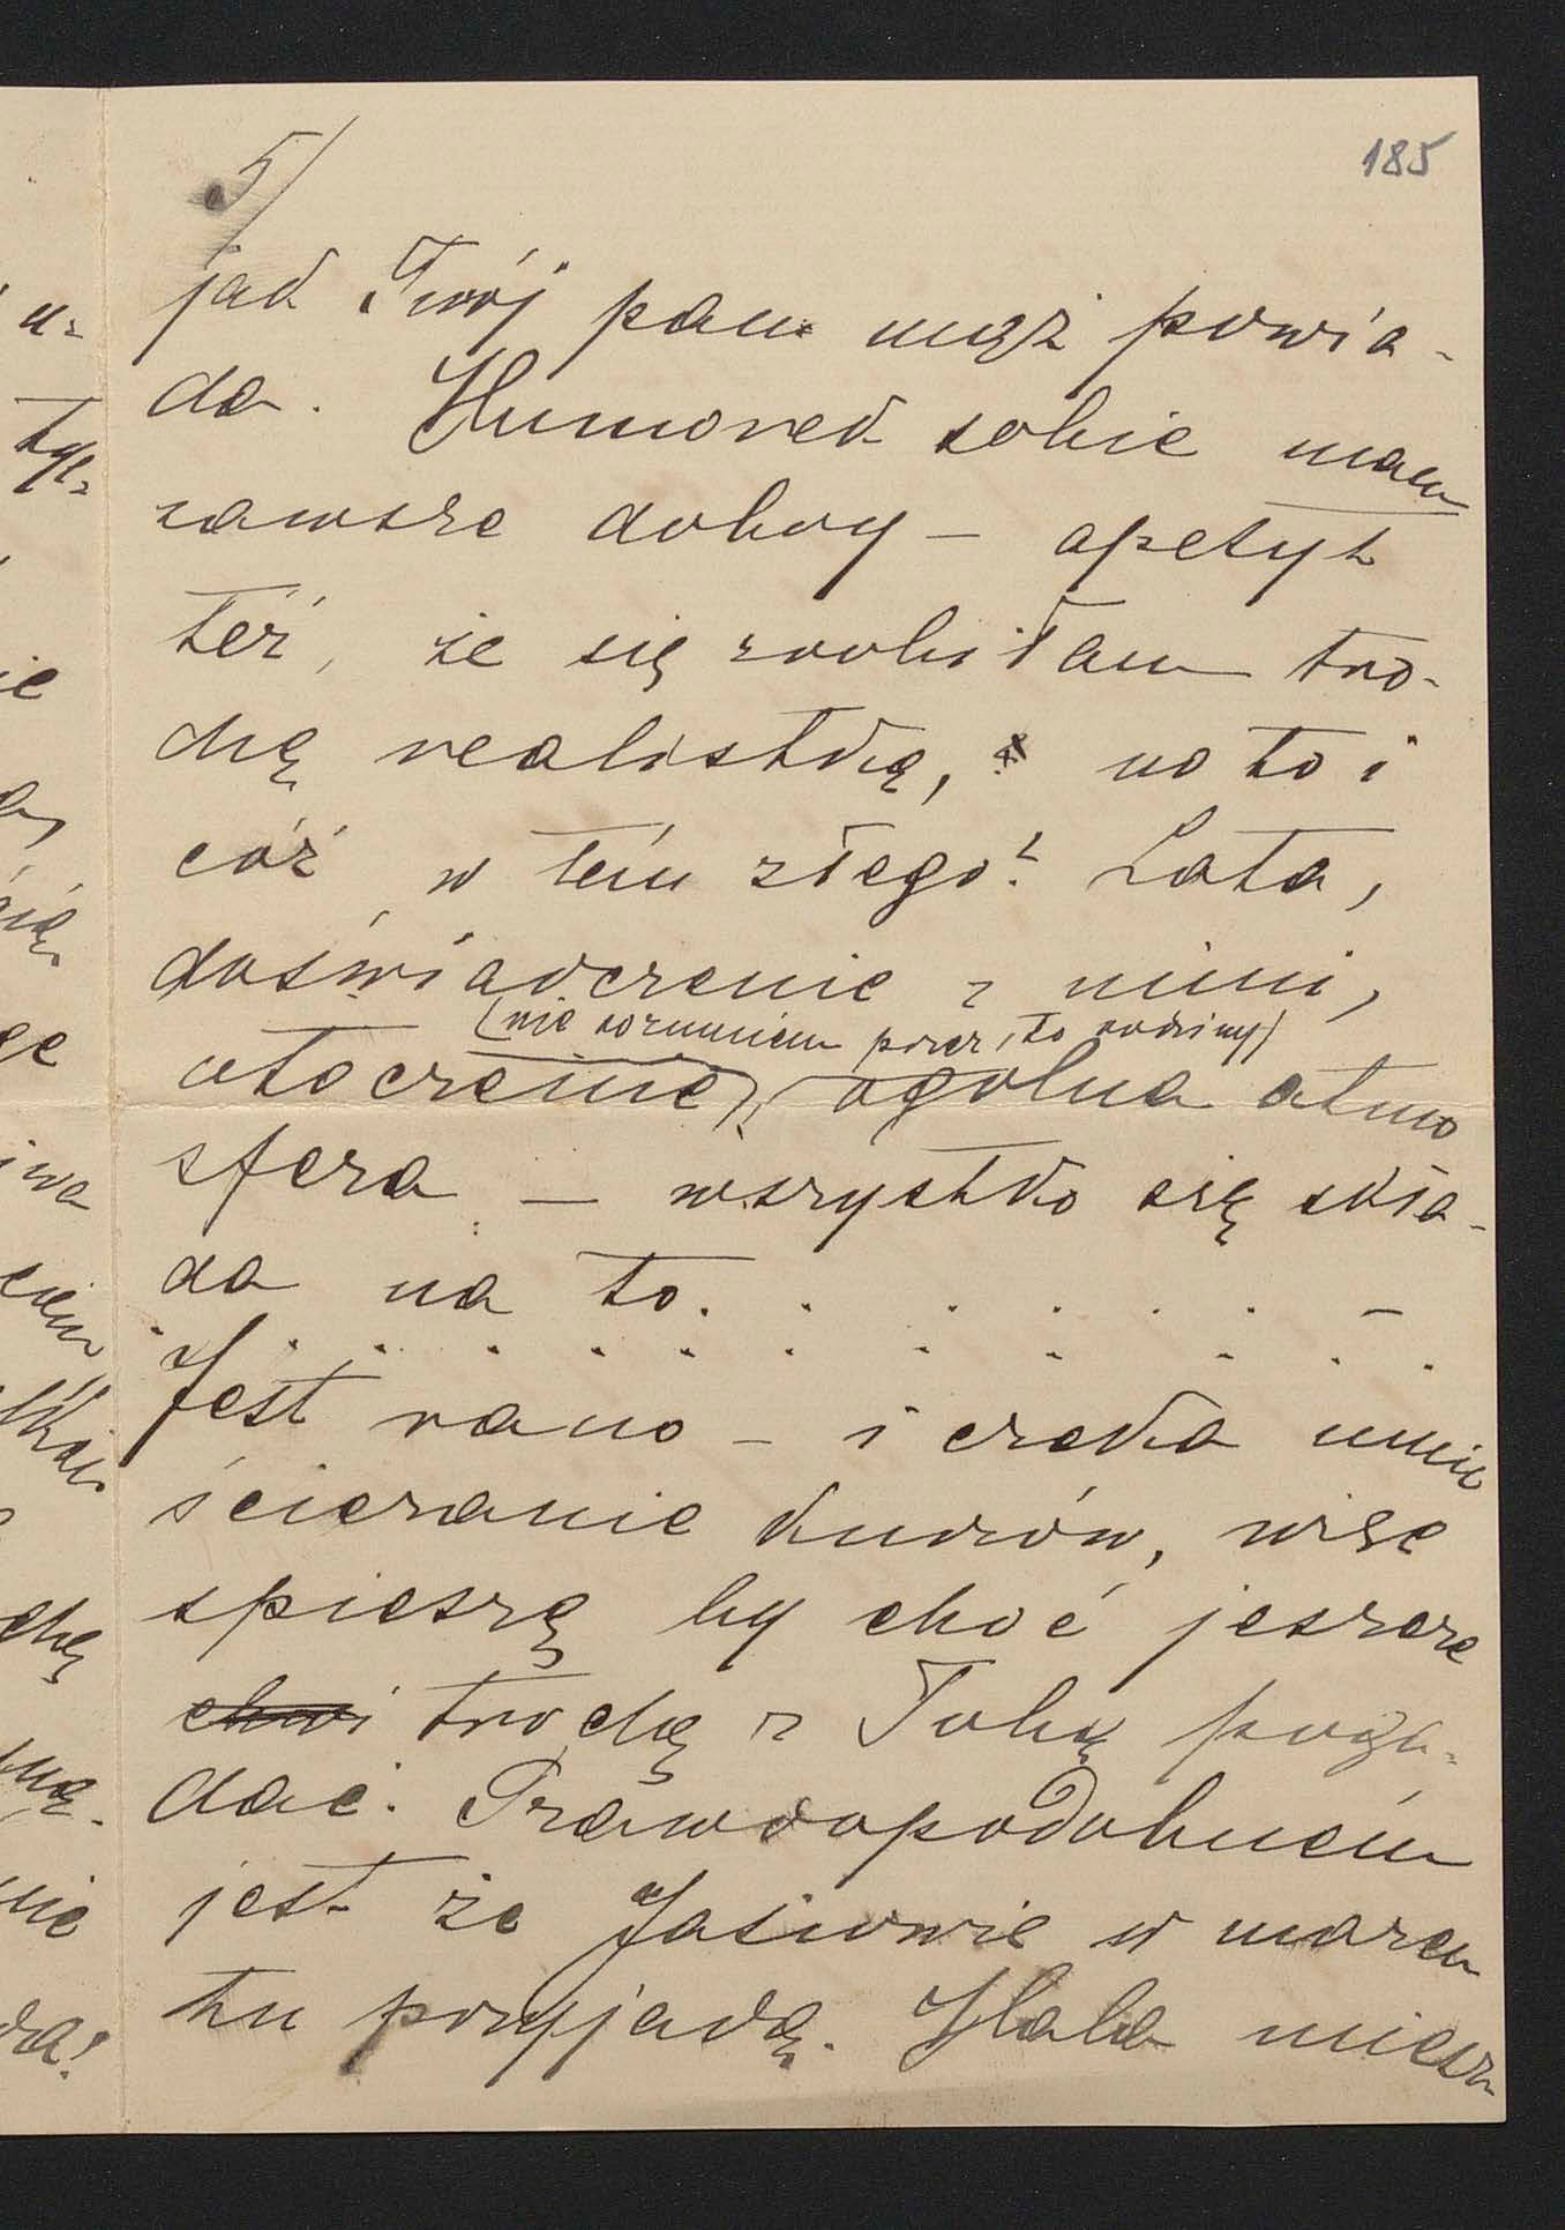 5/
185
jak Twój pan mąż powia-
da. Humorek sobie mam
zawsze dobry – apetyt
też, że się zrobiłam tro-
chę realistką, no to i
cóż w tém złego? Lata,
doświadczenie z nimi,
(nie rozumiem przez to rodziny)
otoczenie, ogólna atmo
sfera – wszystko się skła-
da na to. . . . . . –
. . . . . . . . . . . .
Jest rano – i czeka mnie
ścieranie kurzów, więc
spieszę by choć jeszcze
chwi trochę z Tobą poga-
dać. Prawdopodobném
jest że Jasiowie w marcu
tu przyjadą. Hala miesz
u-
tyl-
ie
ge
iwa
chę
nie